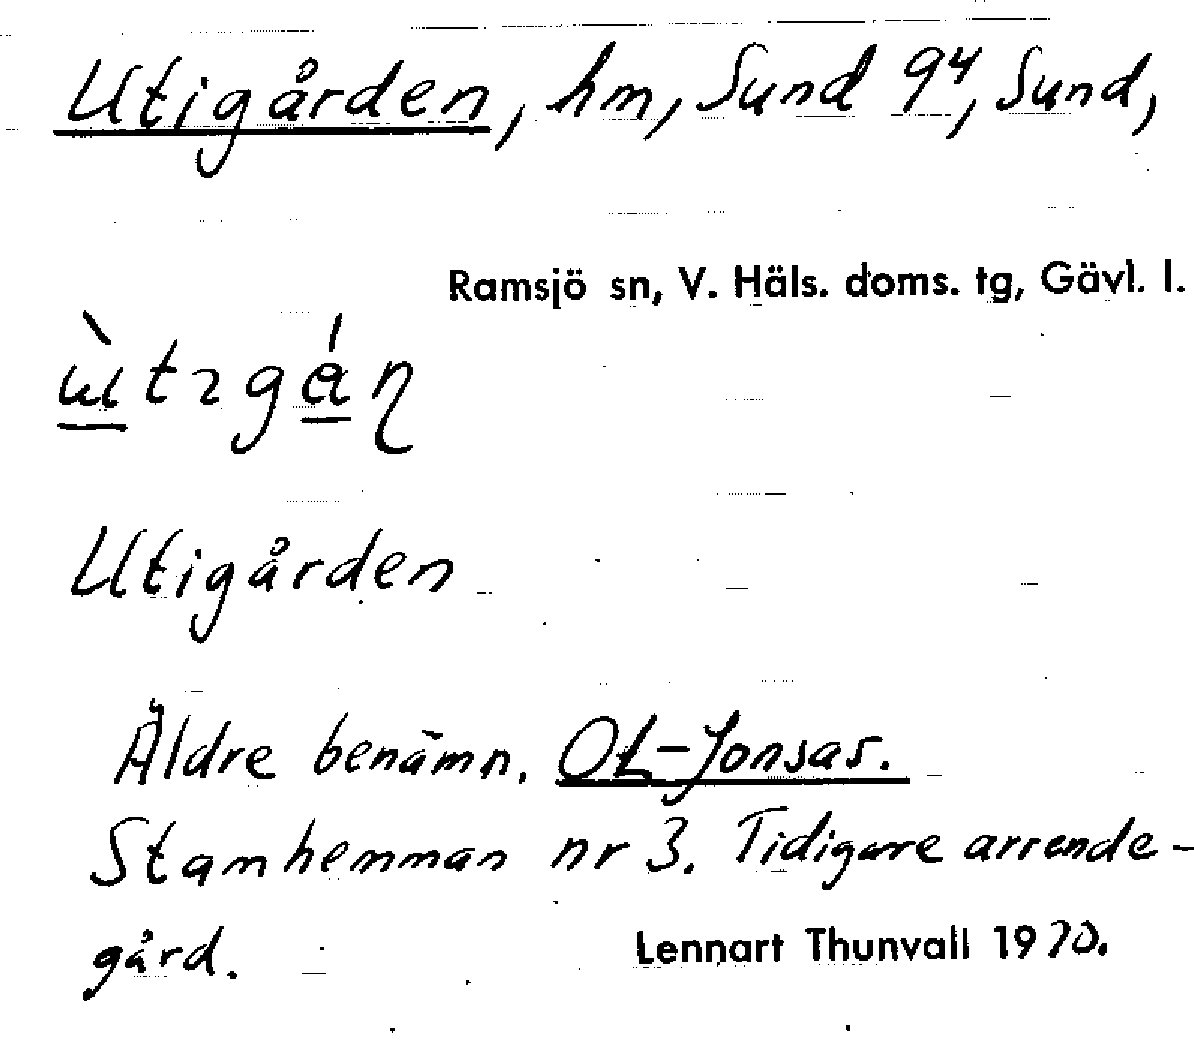 Utigården, hm, Sund 9⁴, Sund,
Ramsjö sn, V. Häls. doms. tg, Gävl. l.
Utigården
Äldre benämn. Ol-Jonsas.
Stamhemman nr 3. Tidigare arrende-
gård. Lennart Thunvall 1970.